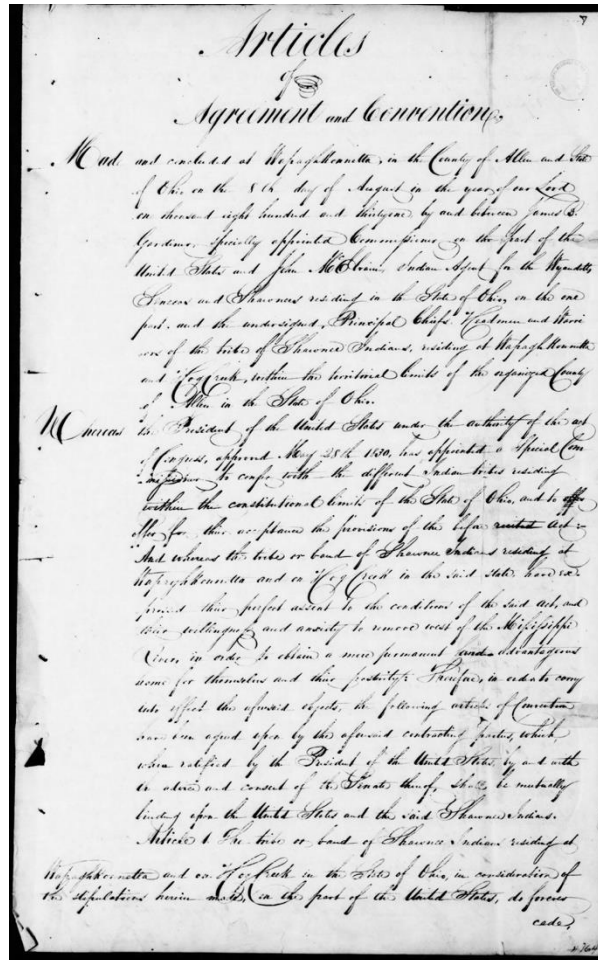 Articles
of
Agreement and Convention,
Made and concluded at Wapaghkonnetta, in the County of Allen and State
of Ohio, on the 8th day of August in the year of our Lord
one thousand eight hundred and thirtyone by and between James B.
Gardiner, specially appointed Commissioner on the part of the
United States and John McElvain, Indian Agent for the Wyandotts,
Senecas and Shawnees residing in the State of Ohio, on the one
part, and the undersigned, Principal Chiefs, Headmen and Warri
ors of the tribe of Shawnee Indians, residing at Wapaghkonnetta
and Hog Creek, within the territorial limits of the organized County
of Allen in the State of Ohio.
Whereas the President of the United States under the authority of the act
of Congress, approved May 28th 1830, has appointed a special Com
missioner to confer with the different Indian tribes residing
within the constitutional limits of the State of Ohio, and to
offer for their acceptance the provisions of the before recited act:
And whereas the tribe or band of Shawnee Indians residing at
Wapaghkonnetta and on Hog Creek in the said state have ex
pressed their perfect assent to the conditions of the said act, and
their willingness and anxiety to remove west of the Mississippi
River, in order to obtain a more permanent and advantageous
home for themselves and their posterity: Therefore, in order to carry
into effect the aforesaid objects, the following articles of Convention
have been agreed upon by the aforesaid contracting parties, which,
when ratified by the President of the United States, by and with
the advice and consent of the Senate thereof, shall be mutually
binding upon the United States and the said Shawnee Indians.
Article 1. The tribe or band of Shawnee Indians residing at
Wapaghkonnetta and on Hog Creek in the State of Ohio, in consideration of
the stipulations herein made, on the part of the United States, do forever
cede,